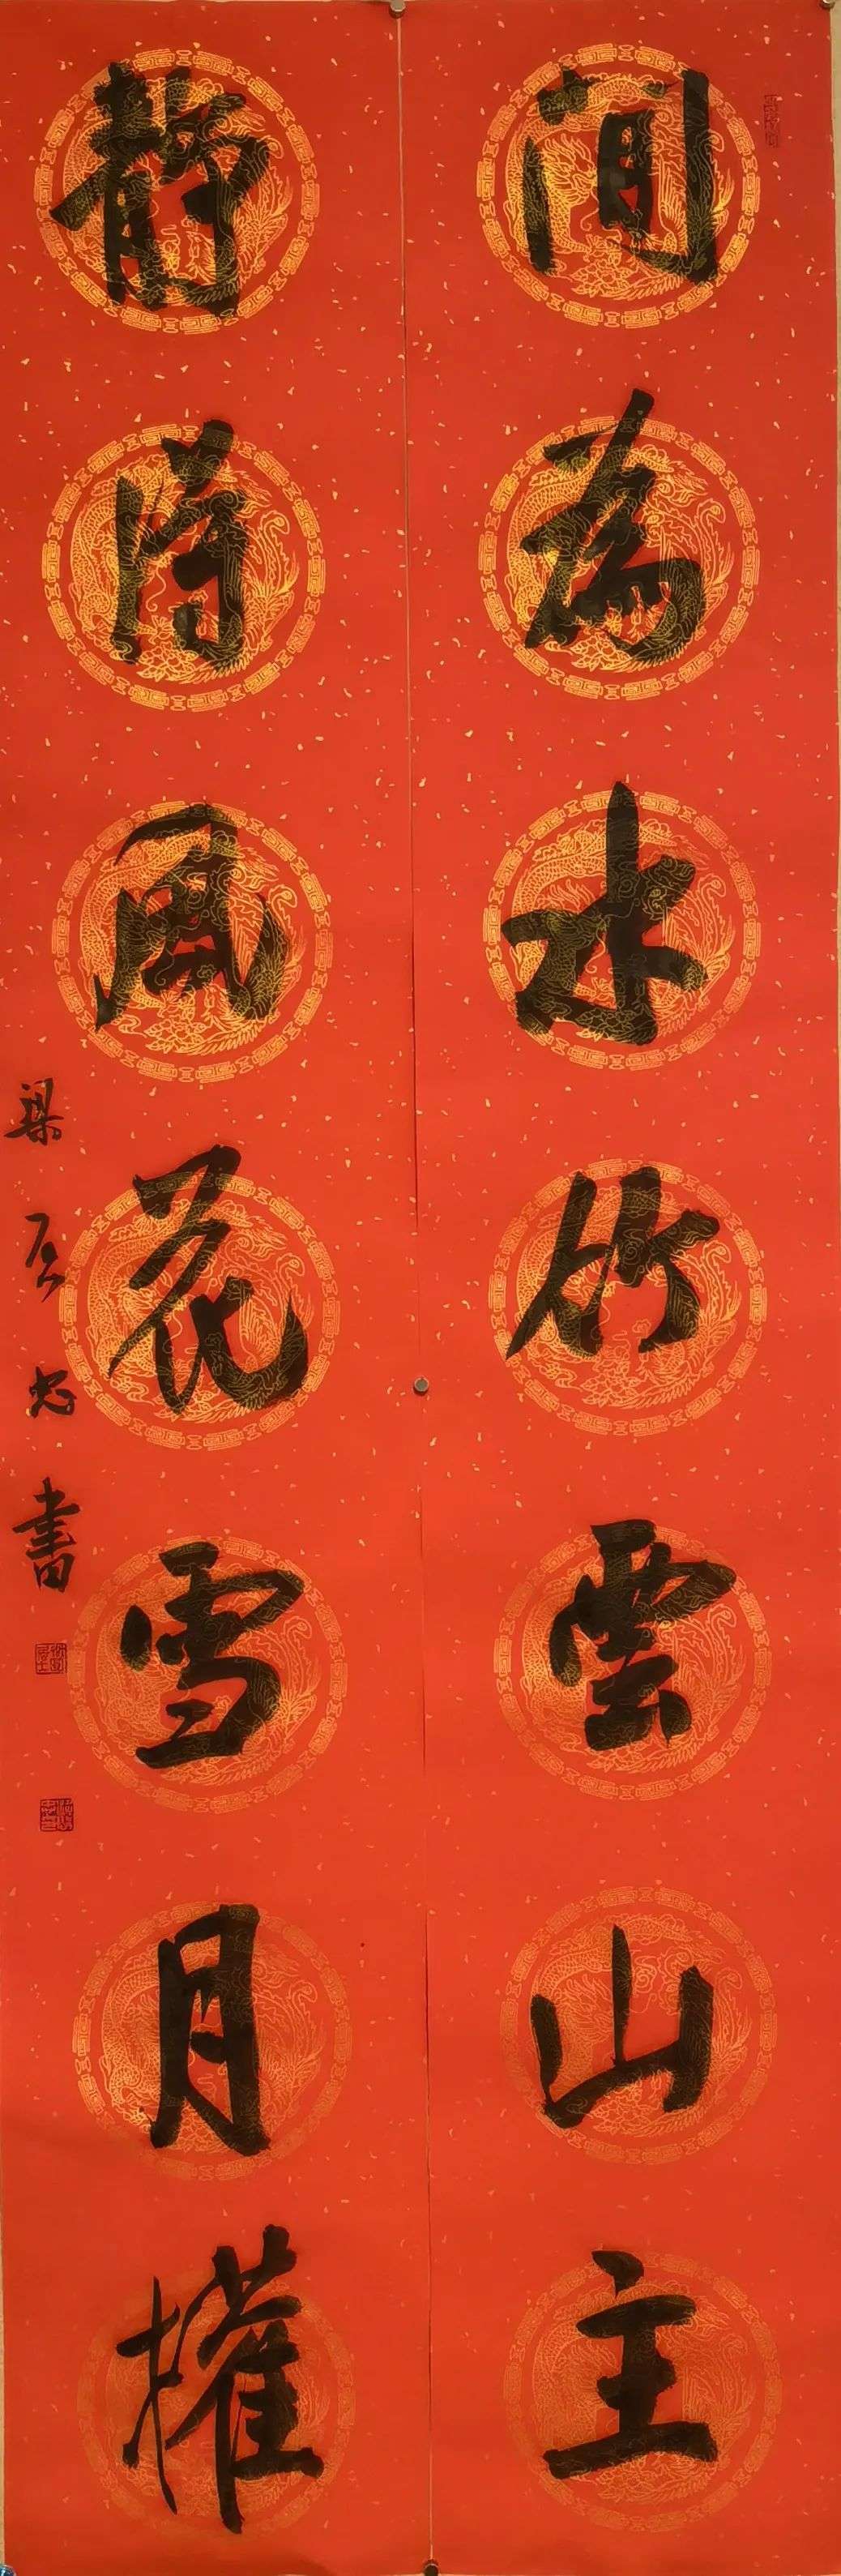 閒為水竹雲山主
静得風花雪月權
梁忠書